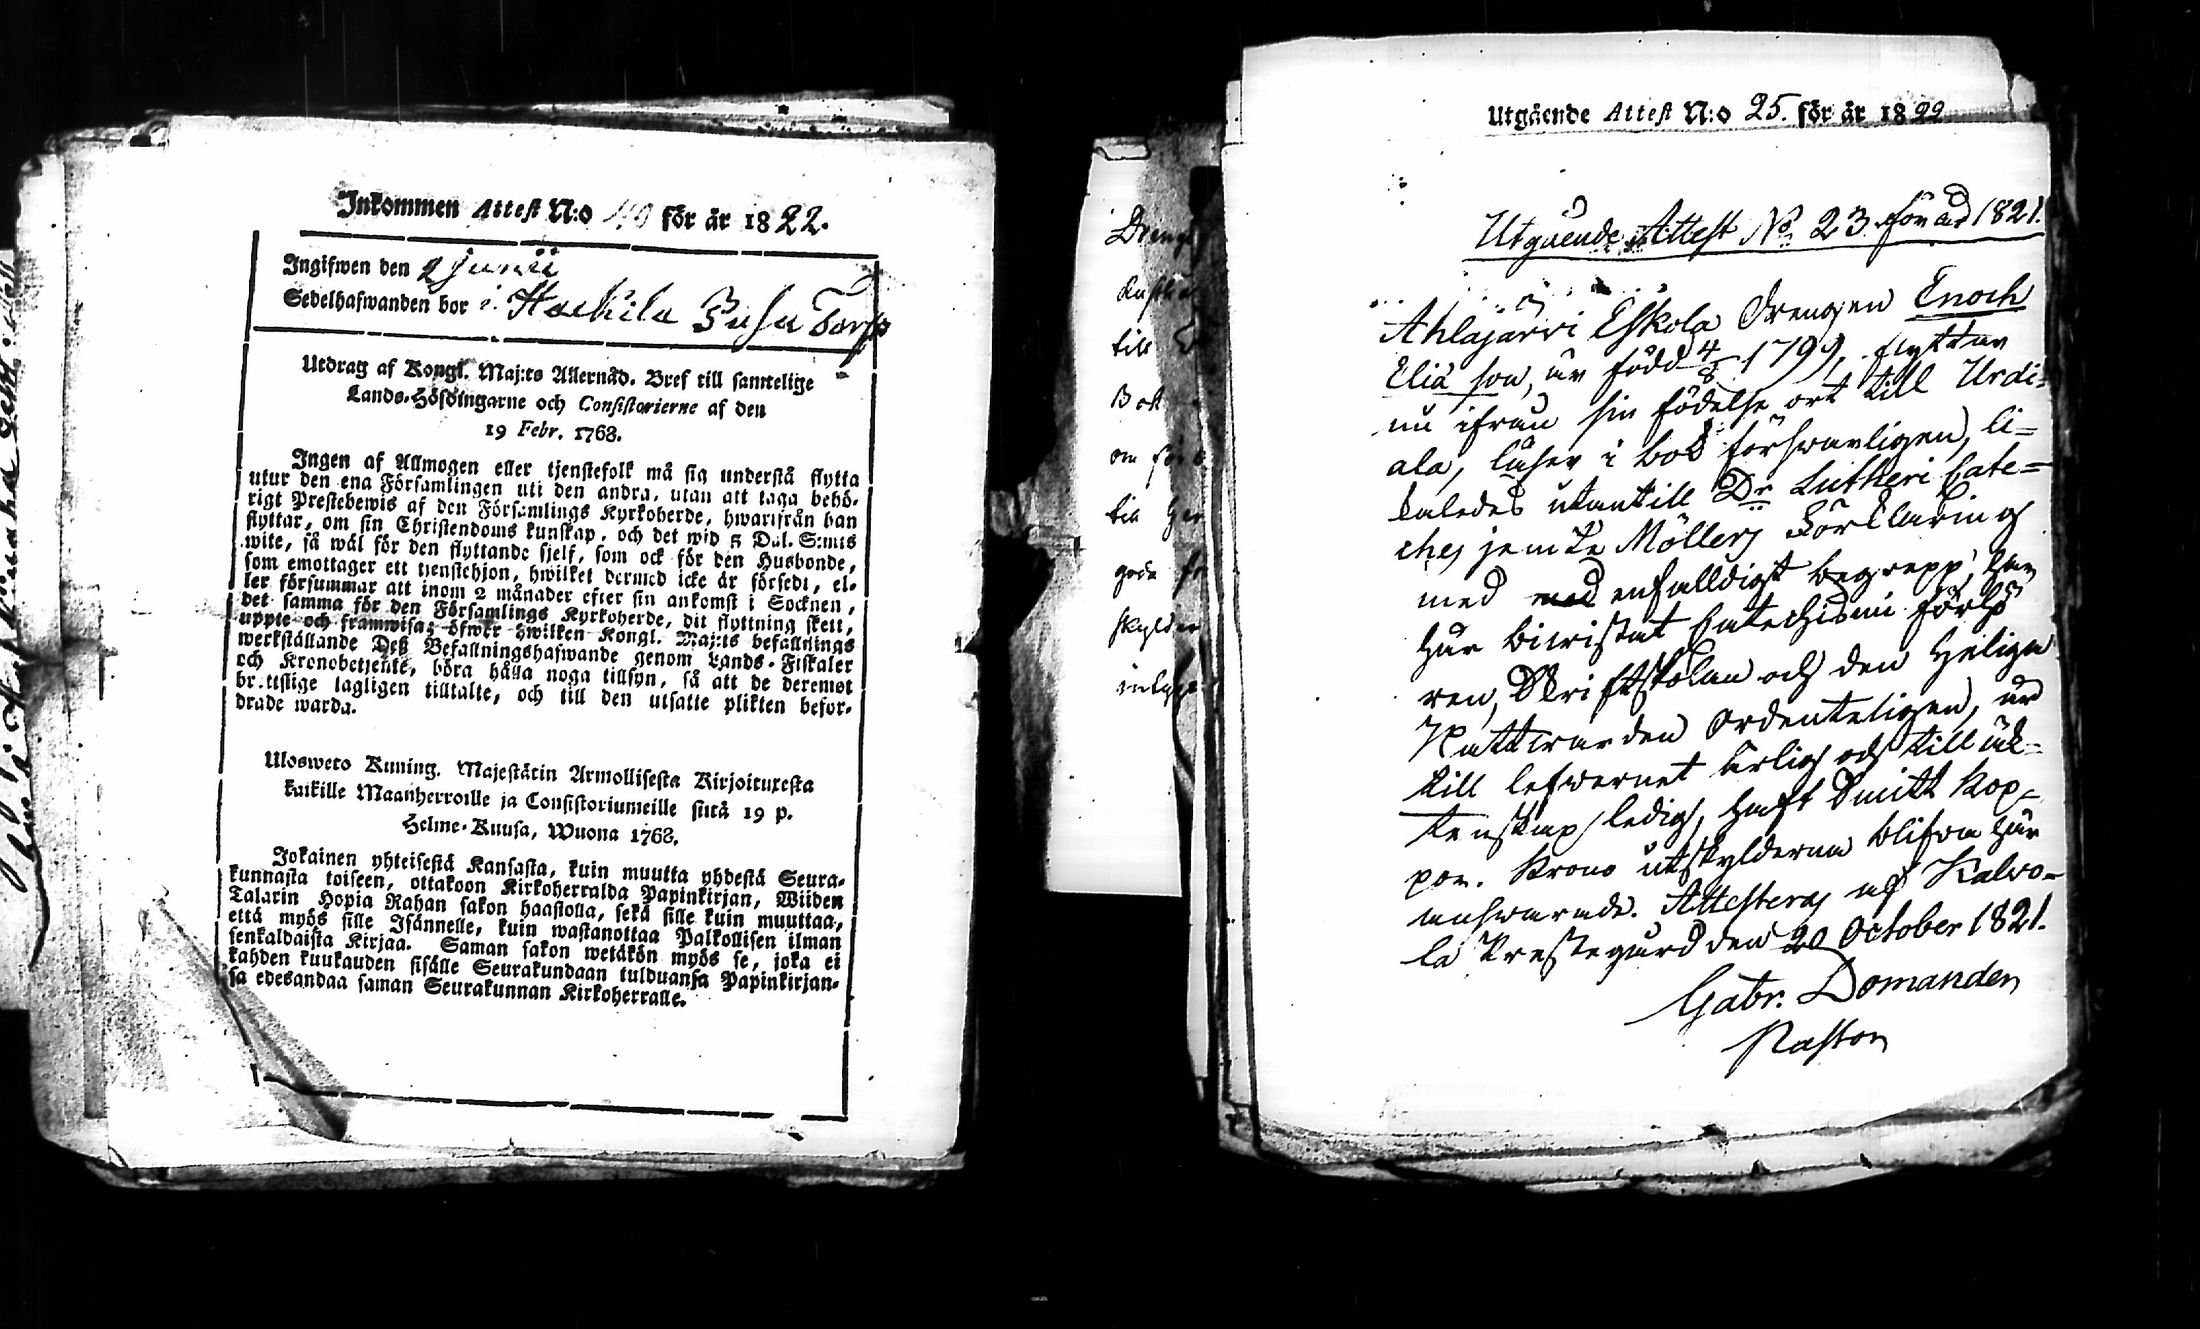 Inkommen Attest N:o 40 för år 1822.
Ingifwen den 2 Junii
Sedelhafwanden bor i Hackila Pusu Torp
Utdrag af Kongl. Maj:ts Allernåd. Bref till samtelige
Lands-Höfdingarne och Consistorierne af den
19 Febr. 1768.
Ingen af Allmogen eller tjenstefolk må sig understå flytta
utur den ena Församlingen uti den andra, utan att taga behö-
rigt Prestebewis af den Församlings Kyrkoherde, hwarifrån han
flyttar, om sin Christendoms kunskap, och det wid 5 Dal. S:mts
wite, så wäl för den flyttande sjelf, som ock för den Husbonde,
som emottager ett tjenstehjon, hwilket dermed icke är försedt, el-
ler försummar att inom 2 månader efter sin ankomst i Socknen,
det samma för den Församlings Kyrkoherde, dit flyttning skett,
uppte och framwisa; öfwer hwilken Kongl. Maj:ts befallnings
werkställande Deß Befallningshafwande genom Lands-Fiskaler
och Kronobetjente, böra hålla noga tillsyn, så att de deremot
brottslige lagligen tilltalte, och till den utsatte plikten befor-
drade warda.
Ulosweto Kuning. Majestätin Armollisesta Kirjoituxesta
kaikille Maanherroille ja Consistoriumeille siitä 19 p.
Helme-Kuusa, Wuona 1768.
Jokainen yhteisestä Kansasta, kuin muutta yhdestä Seura-
kunnasta toiseen, ottakoon Kirkoherralda Papinkirjan, Wiiden
Talarin Hopia Rahan sakon haastolla, sekä sille kuin muuttaa,
että myös sille Isännelle, kuin wastanottaa Palkollisen ilman
senkaldaista Kirjaa. Saman sakon wetäkön myös se, joka ei
kahden kuukauden sisälle Seurakundaan tulduansa Papinkirjan-
sa edesandaa saman Seurakunnan Kirkoherralle.
till
Bok
till
goda
Utgående Attest N:o 25. för år 1822
Utgående Attest No 23 för år 1821.
Ahlajärvi Eskola Drengen Enoch
Elia son, är född 4/8 1799, flyttar
nu ifrån sin födelse ort till Urdi-
ala, läser i bok försvarligen, li-
kaledes utantill Dr Lutheri Cate-
ches jemte Möllers Förklaring
med med enfalldigt begrepp, har
här bivistat Catechismi förhö
ren, Skriftskolan och den Heliga
Nattvarden Ordenteligen, är
till lefvernet ärlig och till äk-
tenskap ledig, haft Smitt kop-
por. Krono utskylderna blifva här
ansvarade. Attesteras af Kalvo-
la Prestegård den 20 October 1821.
Gabr. Domander
Pastor